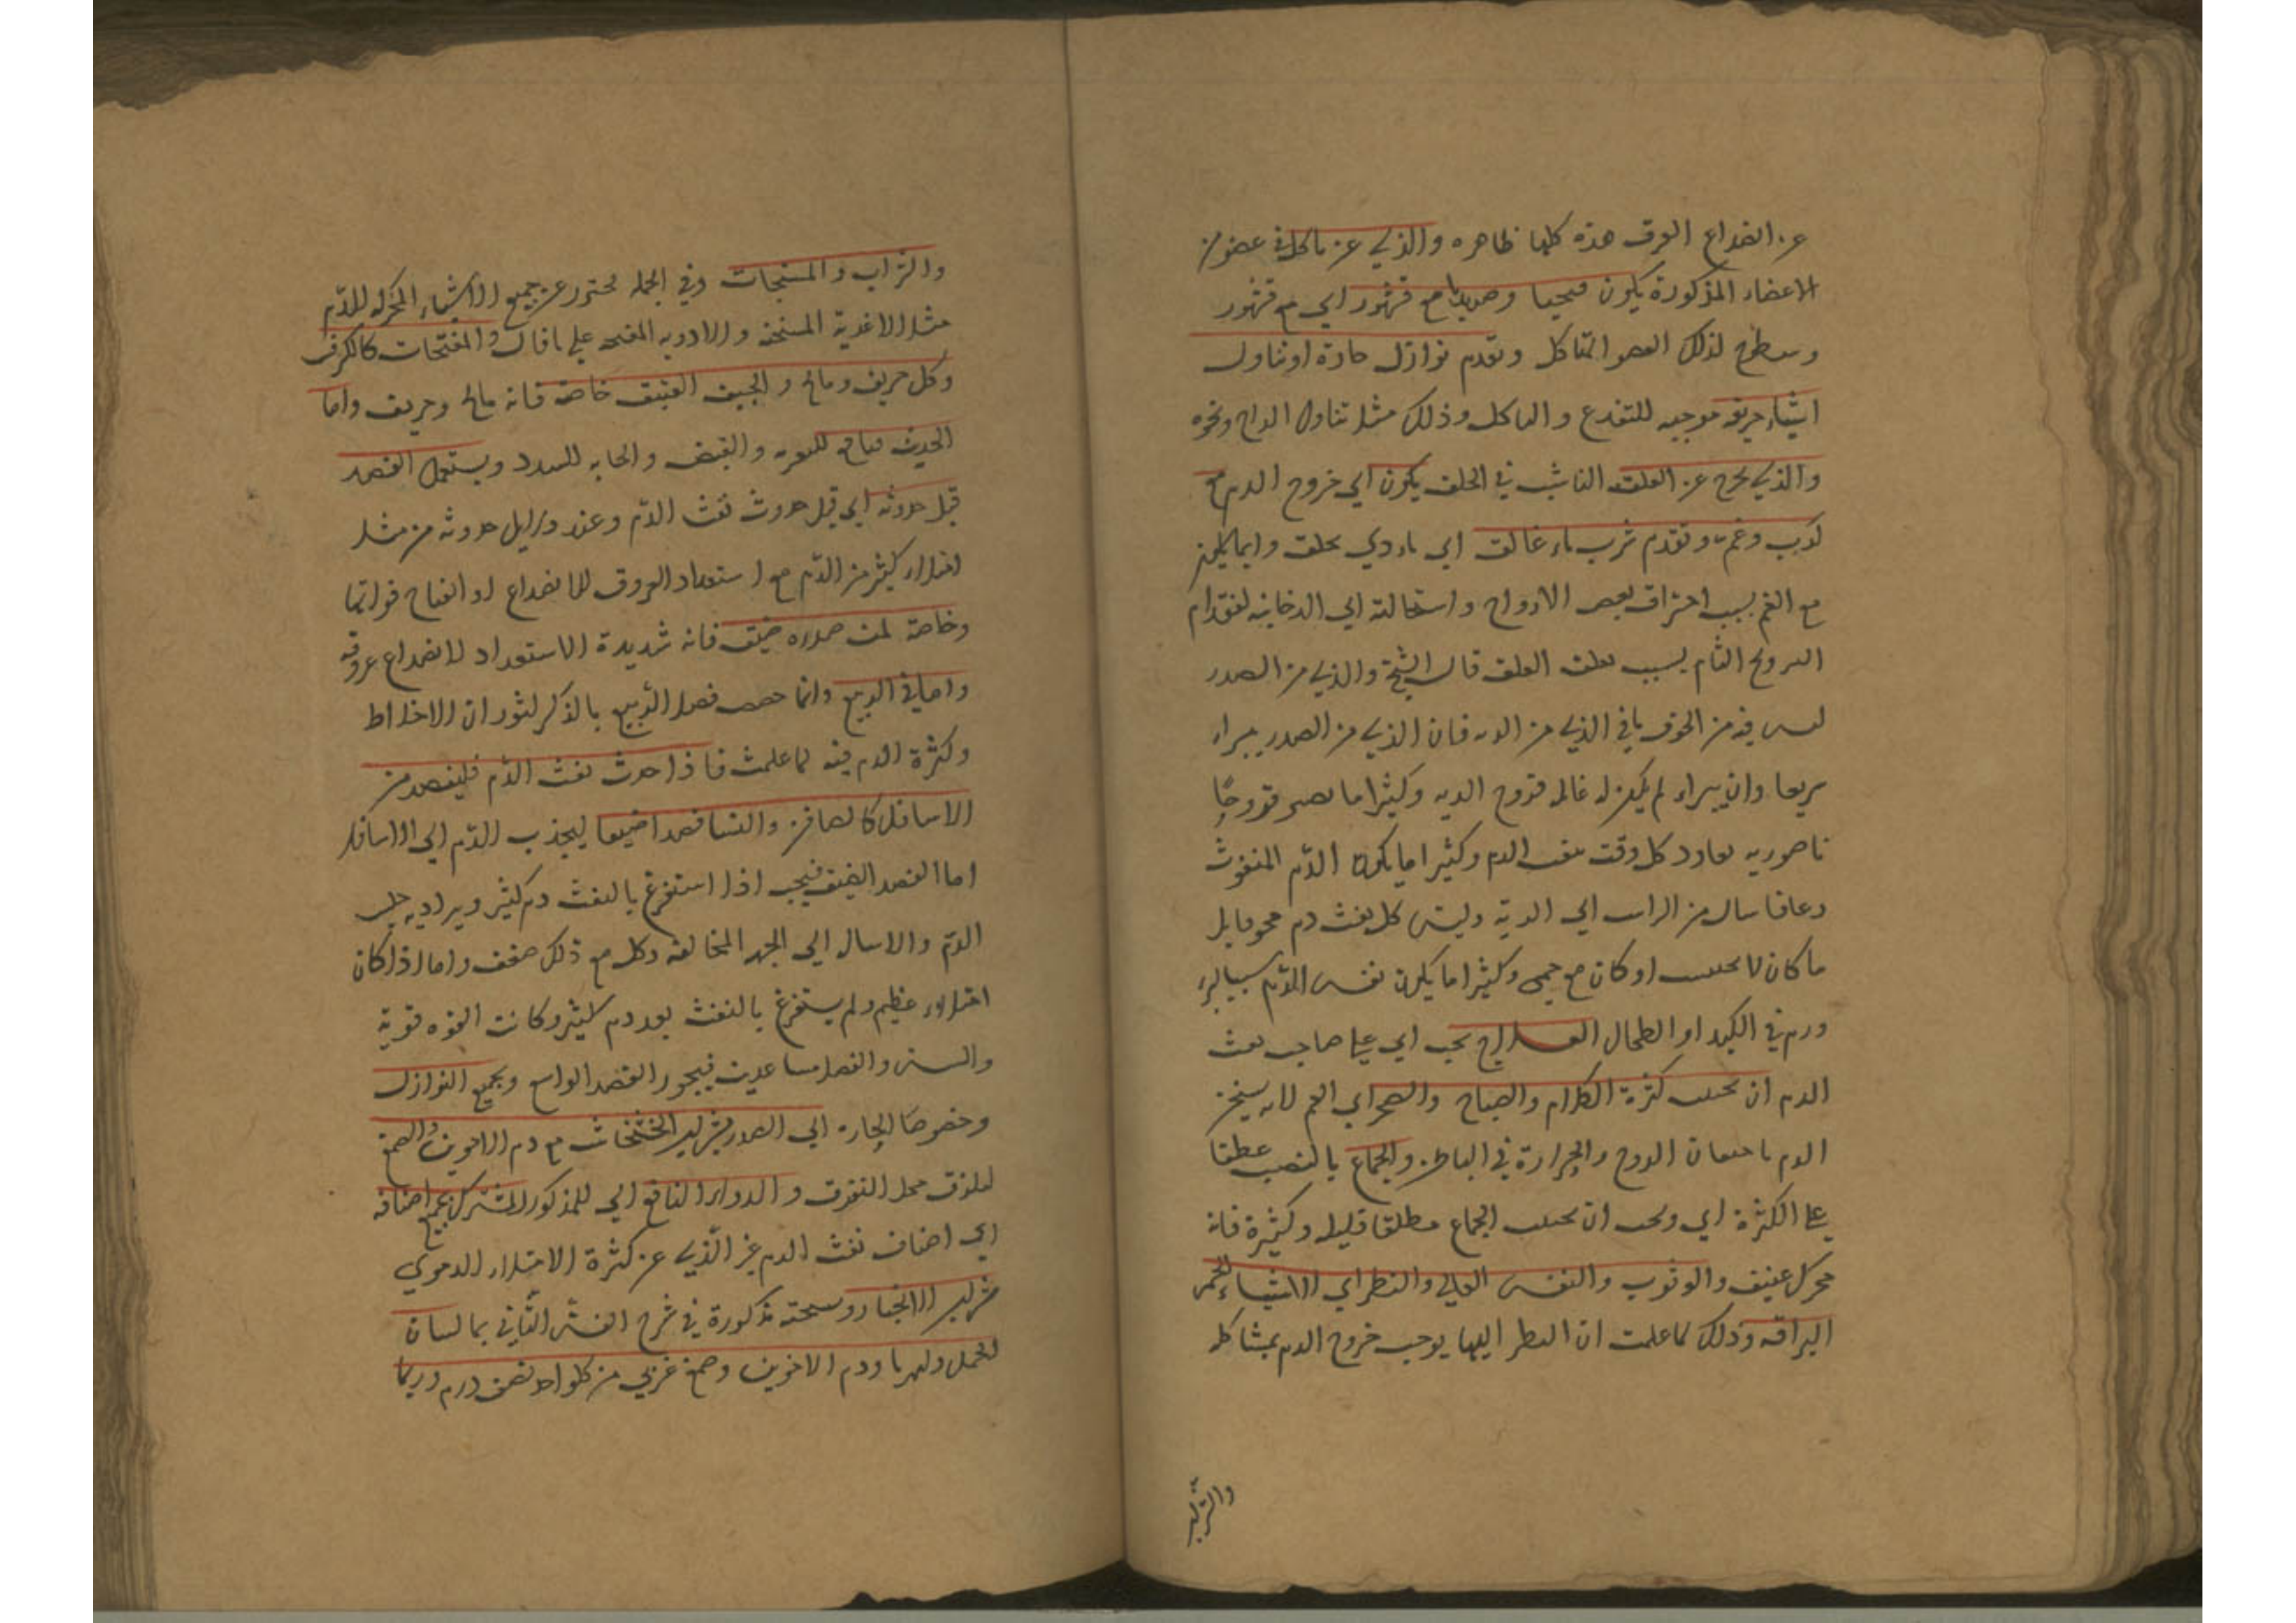 عن انصداع العرق هذه كلها ظاهره والذي عن تاكل في عضو من
الاعضاء المذكورة يكون قيحيا وصديديا مع قشور اي مع قشور
وسطح لذلك العضو المتاكل وتقدم نوازل حادة او تناول
اشياء حريفه موجبه للتقدع والتاكل وذلك مثل تناول الزاج ونحوه
والذي يخرج عن العلقه الناشب في الحلق يكون اي خروج الدم مع
كرب وغم وتقدم شرب ماء عالق اي ماء ذي علق وانما يكون
مع الغم بسبب احتراق بعض الارواح واستحالته الي الدخانيه لفقدام
الترويح التام بسبب تعلق العلق قال الشيخ والذي من الصدر
ليس فيه من الخوف ما في الذي من الريه فان الذي من الصدر يبراء
سريعا وان يبراء لم يكن له غائله قروح الريه وكثيرا ما يصير قروحًا
ناصوريه يعاود كل وقت بنفث الدم وكثيرا ما يكون الدم المنفوث
رعافا سال من الراس الي الرية وليس كل نفث دم مخوفا بل
ما كان لا يحتبس او كان مع حمى وكثيرا ما يكون نفث الدم بسبب
ورم في الكبد او الطحال العلاج يجب اي علي صاحب نفث
الدم ان يجتنب كثرة الكلام والصياح والضجر اي الغم لانه يسخن
الدم باحتقان الروح والحرارة في الباطن والجماع بالنصب عطفا
علي الكثرة اي ويجب ان يجتنب الجماع مطلقا قليله وكثيرة فانه
محرك عنيف والوثوب والنفس العالي والنظر الي الاشياء الحمر
البراقه وذلك لما علمت ان النظر اليها يوجب خروج الدم بمشاكله
والشراب
والشراب والمسخنات وفي الجمله يحترز عن جميع الاشياء المحركه للدم
مثل الاغذية المسخنه والادويه المفتحه علي ما قال والمفتحات كالكرفس
وكل حريف ومالح والجبن العتيق خاصة فانه مالح وحريف واما
الحديث فنافع للتغريه والقبض والحابه للسدد ويستعمل الفصد
قبل حدوثه اي قبل حدوث نفث الدم وعند دلايل حدوثه من مثل
امتلاء كثير من الدم مع استعداد العروق للانصداع او انفتاح فواتها
وخاصة لمن صدره ضيق فانه شديدة الاستعداد لانصداع عروقه
واما في الربيع وانما خصص فصل الربيع بالذكر لثوران الاخلاط
وكثرة الدم فيه لما علمت فاذا حدث نفث الدم فليفصد من
الاسافل كالصافن والنسا فصدا ضيقا ليجذب الدم الي الاسافل
اما الفصد الضيق فيجب اذا استفرغ بالنفث دم كثير ويراد به حبس
الدم والاسال الي الجهه المخالفه وكل مع ذلك ضعف واما اذا كان
امتلاء عظيم ولم يستفرغ بالنفث بعد دم كثير وكانت القوه قوية
والسن والفصل مساعدين فيجوز الفصد الواسع وجميع النوازل
وخصوصًا الحاره الي الصدر بشراب الخشخاش مع دم الاخوين والصمغ
ليلزق محل التفرق والدواء النافع اي للمذكور المشترك بجميع اصنافه
اي اصناف نفث الدم غير الذي عن كثرة الامتلاء الدموي
شراب الانجبار ونسخته مذكورة في شرح الفن الثاني بما لسان
الحمل وكهربا ودم الاخوين وصمغ عربي من كل واحد نصف درم وربما